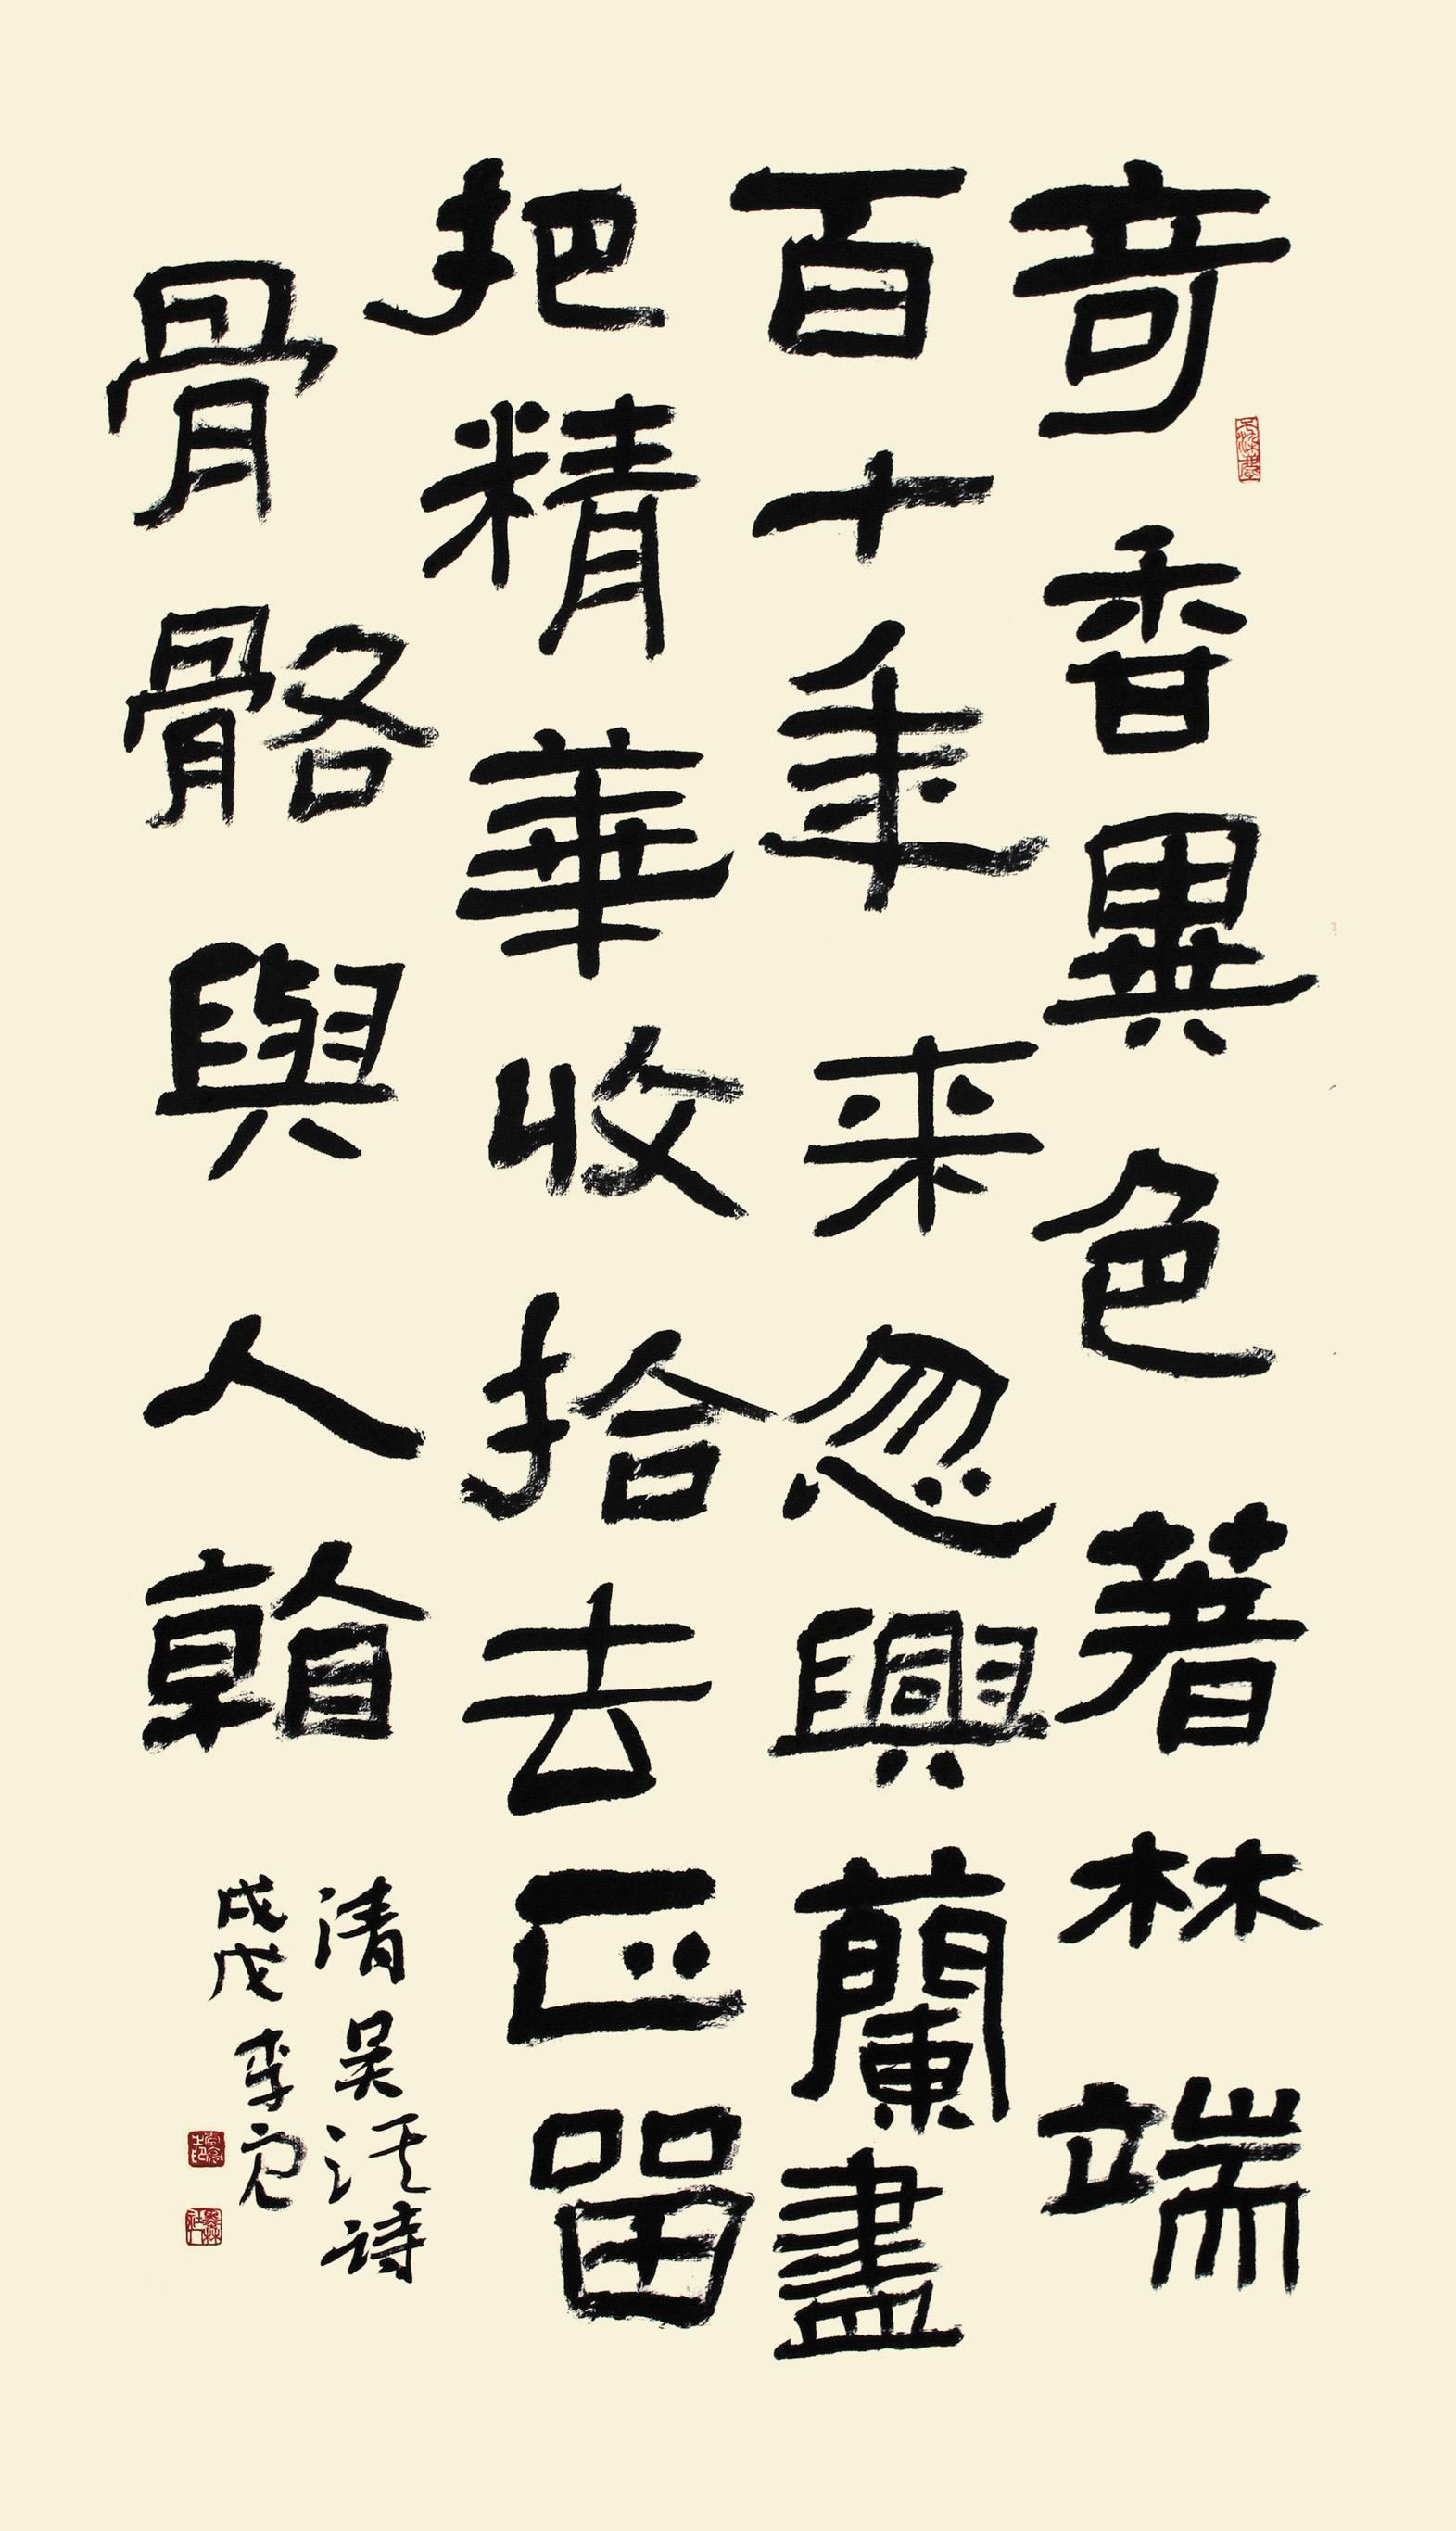 奇香異色著林端
百十年来忽興蘭盡
把精華收拾去正留
骨骼與人看
清吴淇诗
戊戌李亮
不染塵